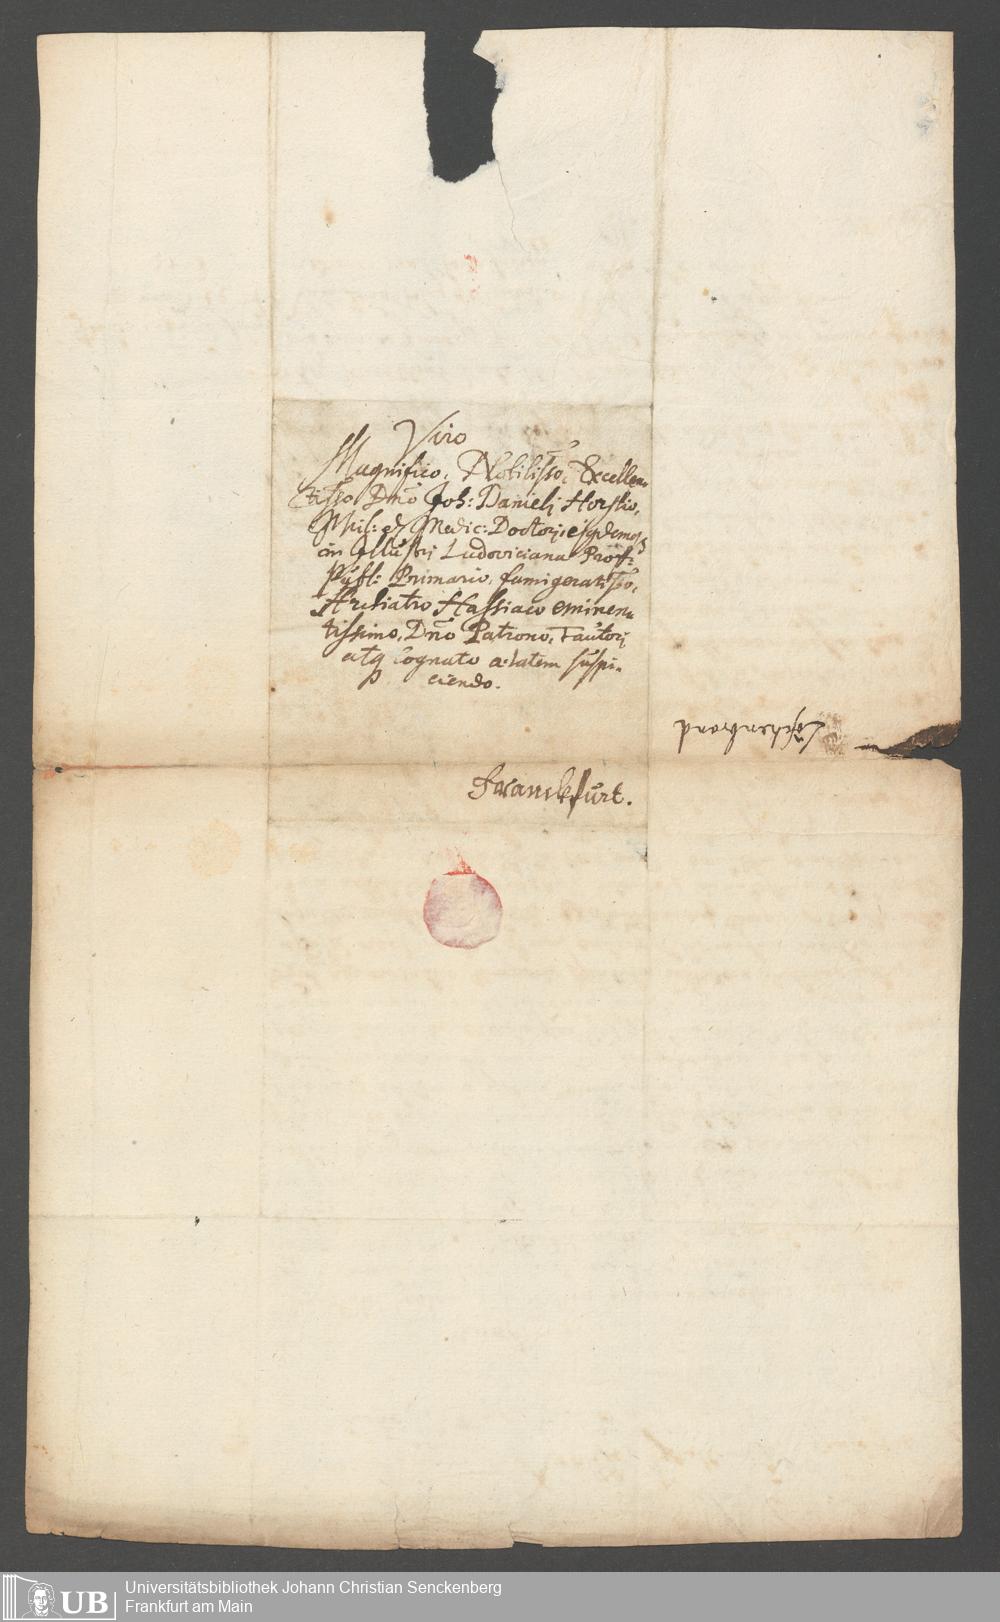 Viro
Magnifico, Nobilisso, Excellen-
tisso Dno Joh: Danieli Horstio,
Phil: & Medic: Doctori, ejusdemq
in Illustri Ludoviciana Prof:
Publ: Primario, famigeratisso,
Archiatro Hassiaco eminen-
tissimo, Dno Patrono, Fautori
atq Cognato aetatem suspi-
ciendo.
p
Franckfurt.
Universitätsbibliothek Johann Christian Senckenberg
Frankfurt am Main
UB